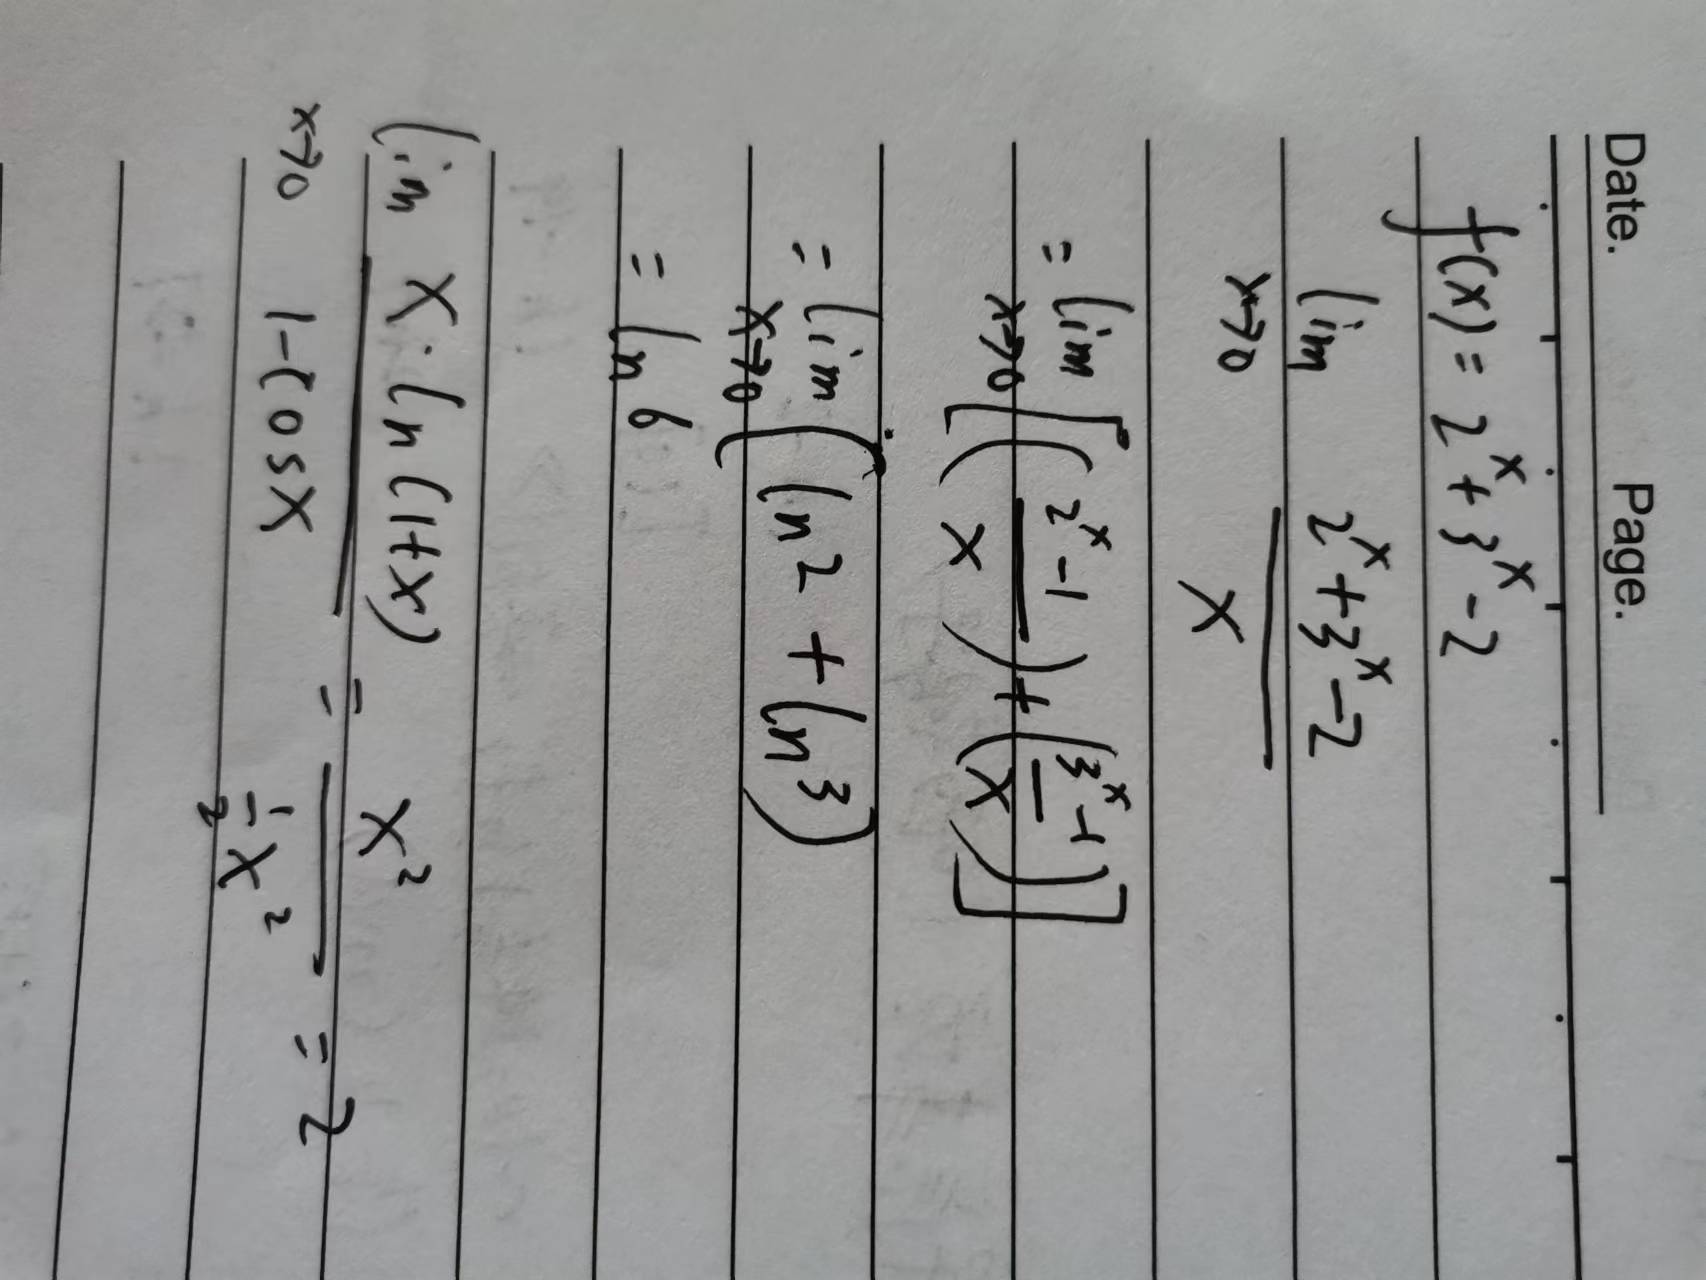 Date. Page.
f(x) = 2^x + 3^x - 2
lim x→0 (2^x + 3^x - 2) / x
= lim x→0 [((2^x - 1) / x) + ((3^x - 1) / x)]
= lim x→0 (ln2 + ln3)
= ln 6
lim x→0 (x · ln(1+x)) / (1 - cosx) = x^2 / (1/2 x^2) = 2